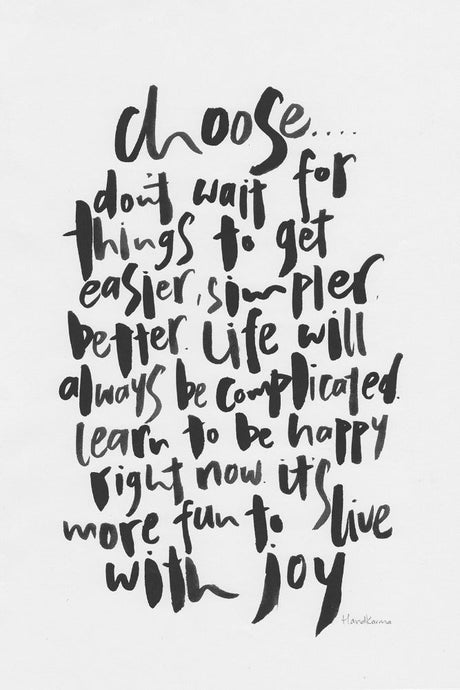 choose....
don't wait for
things to get
easier, simpler,
better. Life will
always be complicated.
learn to be happy
right now. it's
more fun to live
with joy
HandKarma